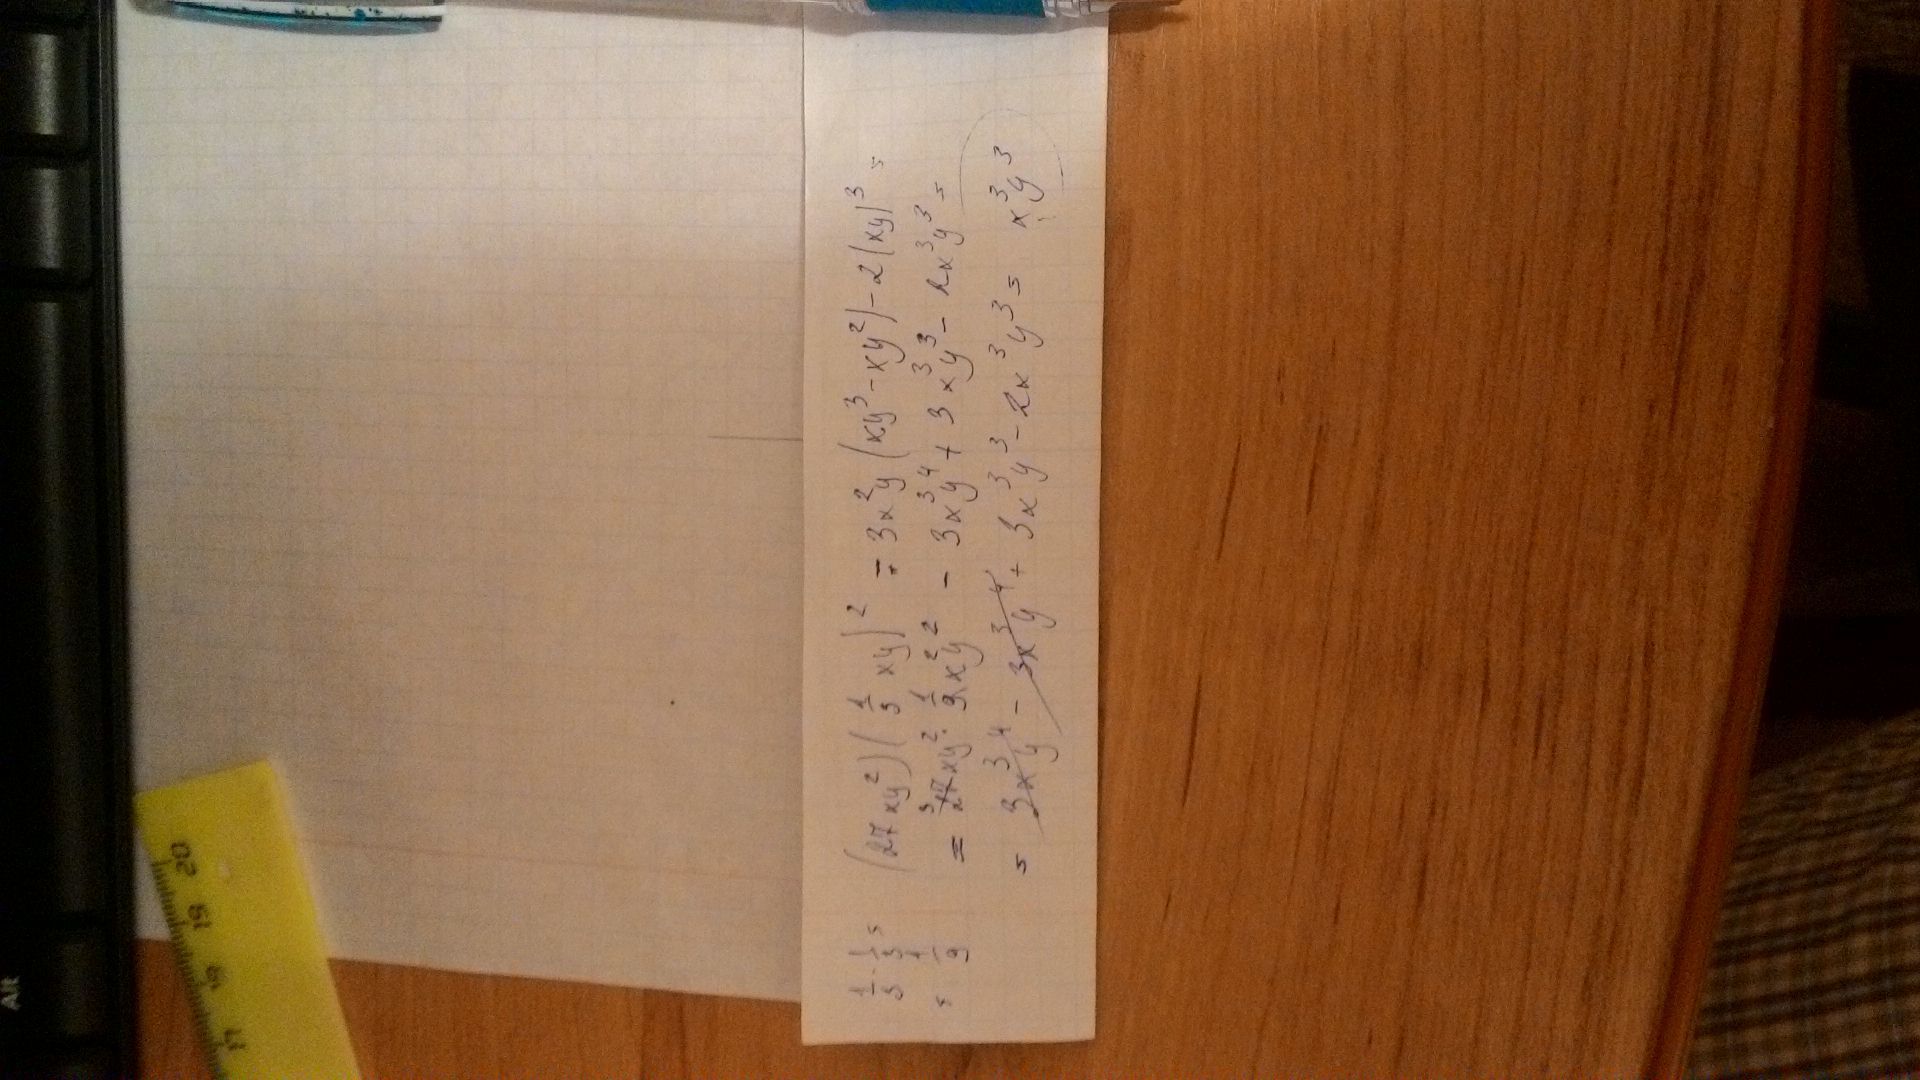 1/3 · 1/3 =
= 1/9
(27xy²)(1/3 xy)² = 3x²y(xy³ - xy²) - 2(xy)³ =
= 27xy² · 1/9x²y² - 3x³y⁴ + 3x³y³ - 2x³y³ =
= 3x³y⁴ - 3x³y⁴ + 3x³y³ - 2x³y³ = x³y³
20
19
17
Alt